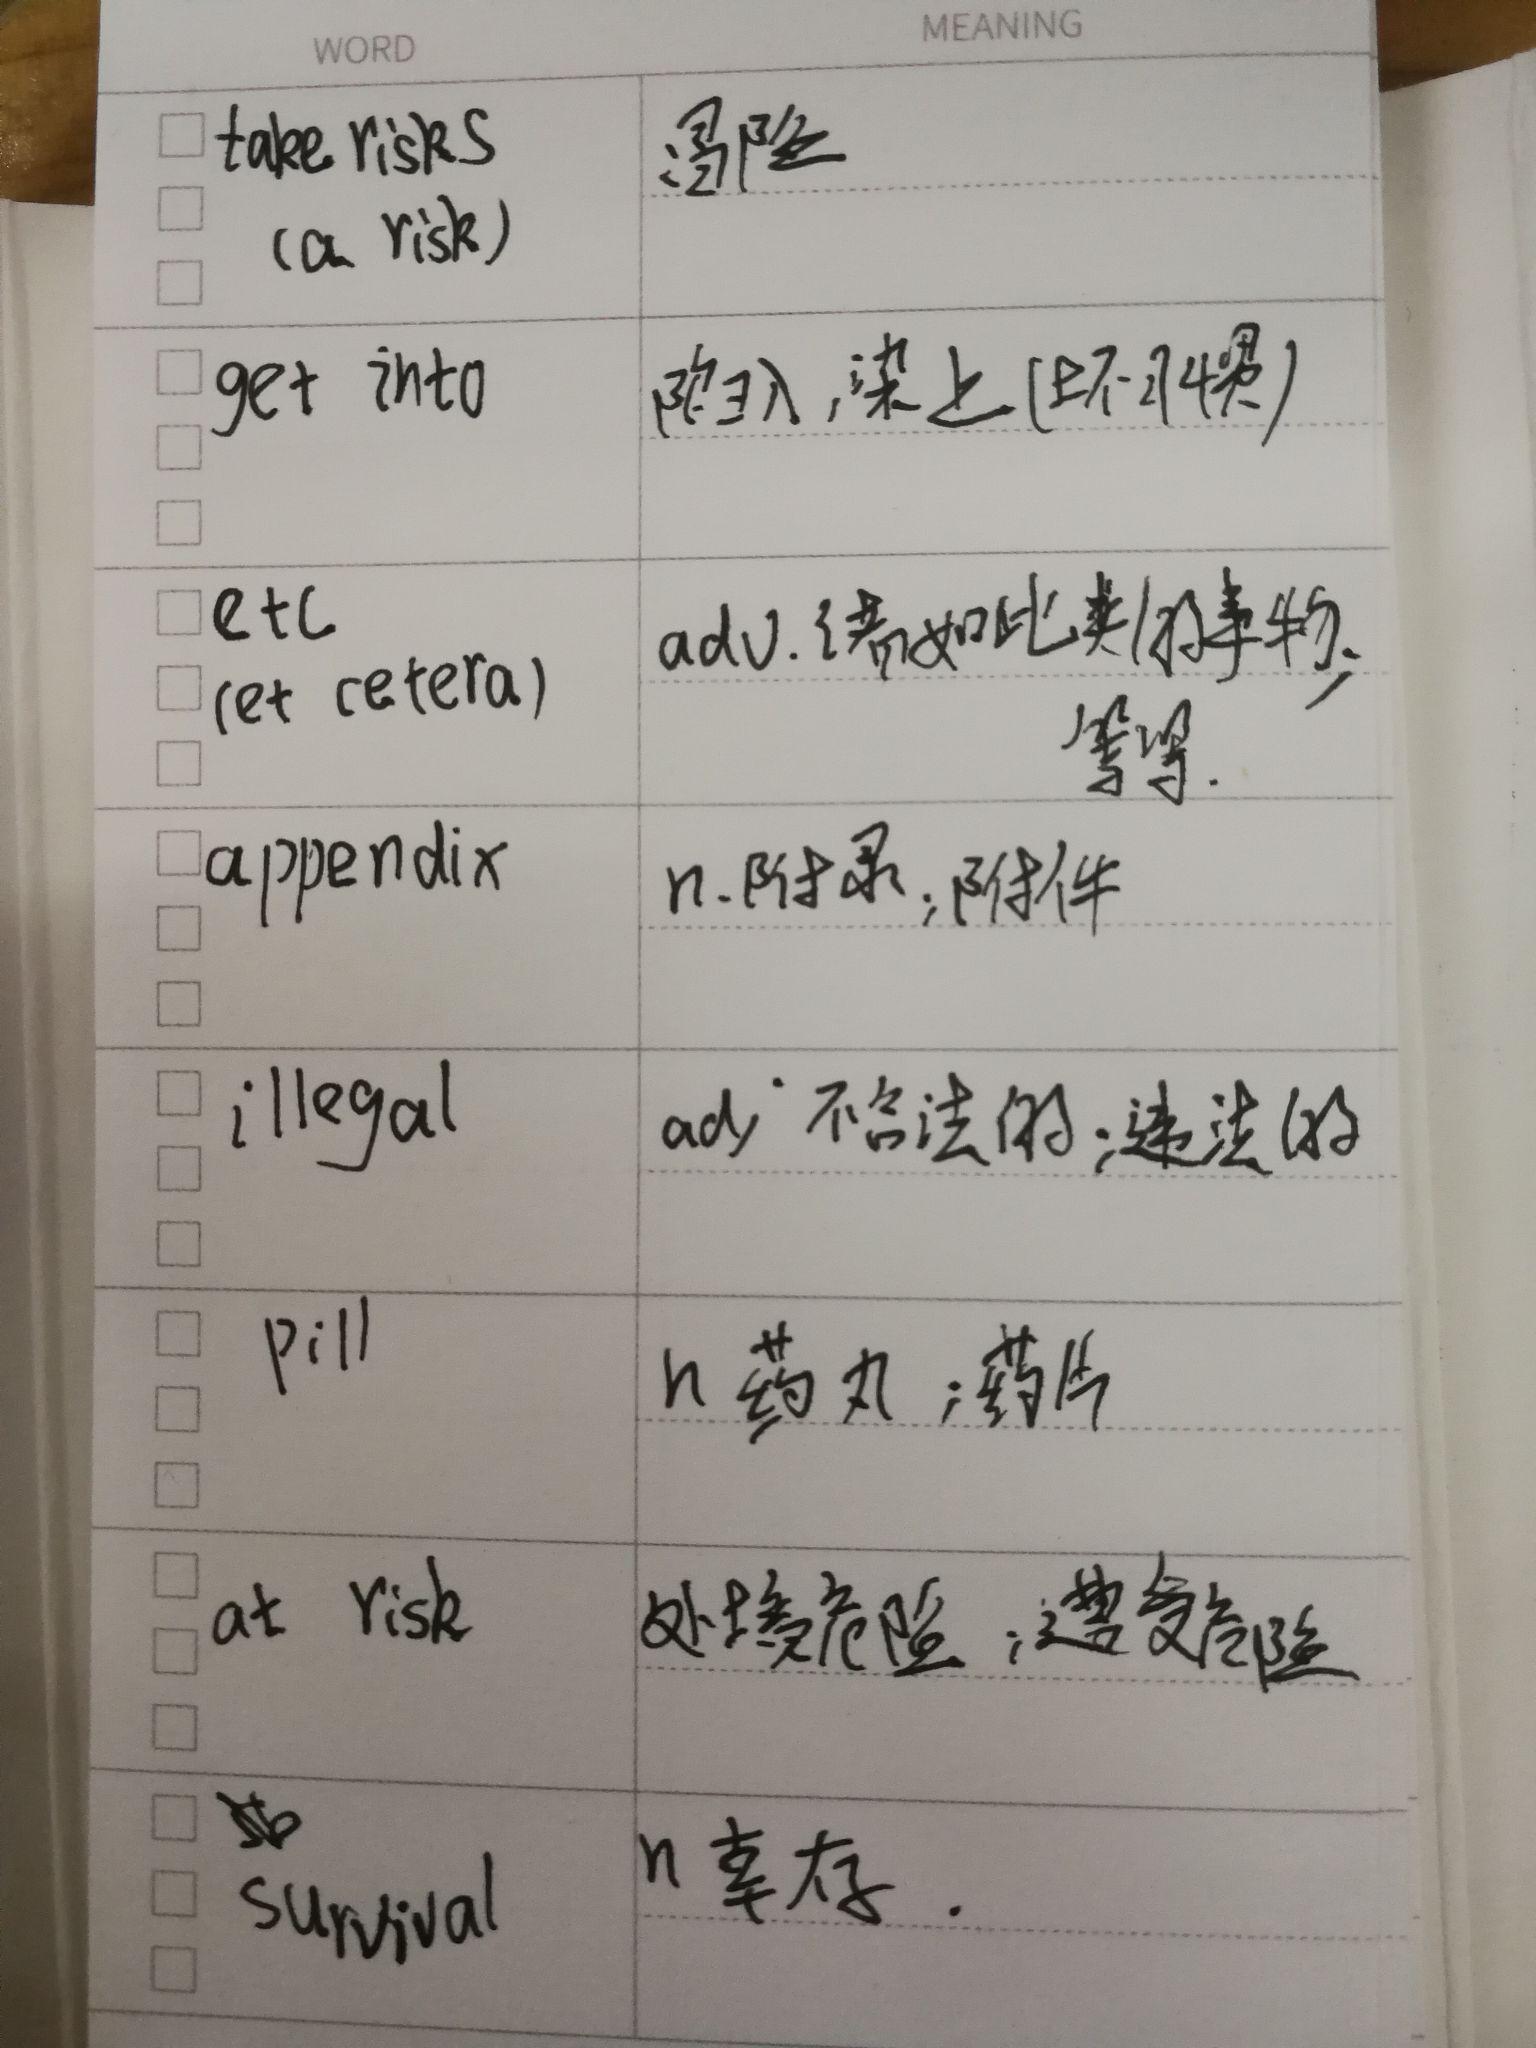 WORD MEANING
take risks 冒险
(a risk)
get into 陷入,染上(坏习惯)
etc adv.诸如此类的事物;
(et cetera) 等等.
appendix n.附录;附件
illegal adj 不合法的;违法的
pill n 药丸;药片
at risk 处境危险;遭受危险
survival n 幸存.